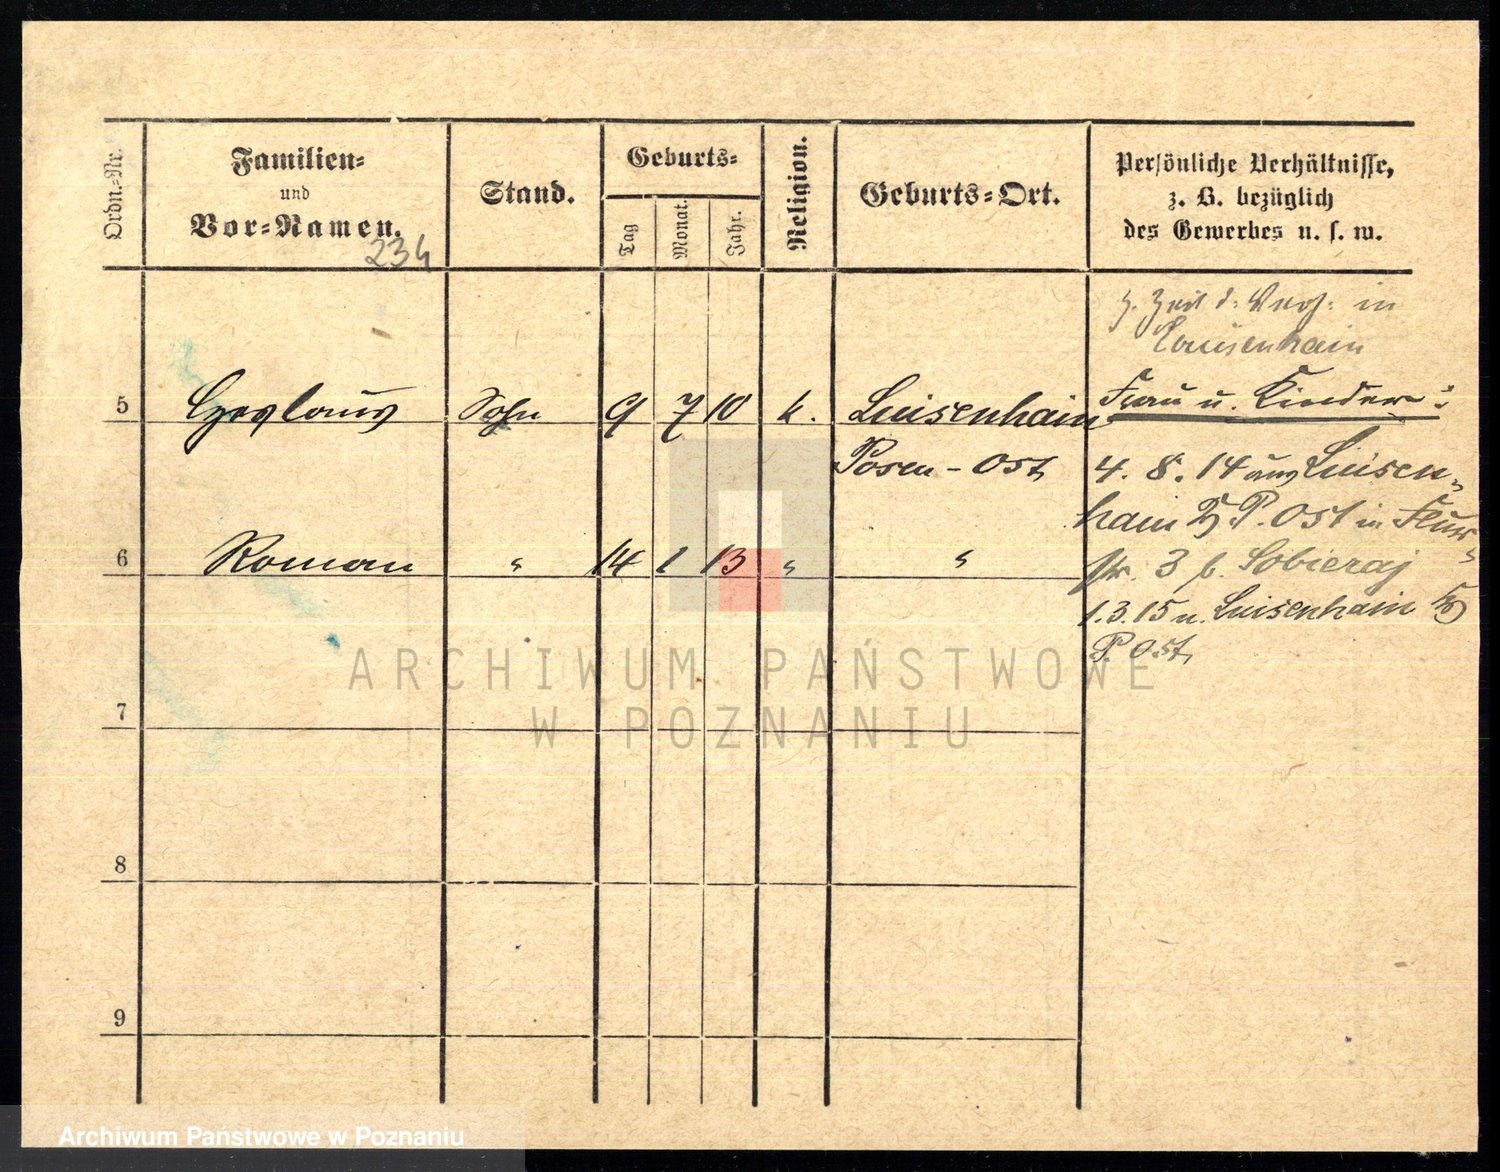 Ordn.-Nr.
Familien-
und
Vor-Namen.
234
Stand.
Geburts-
Tag
Monat.
Jahr.
Religion.
Geburts-Ort.
Persönliche Verhältnisse,
z. B. bezüglich
des Gewerbes u. s. w.
z. Zeit d. in
Louisenhain
5 Czeslaus Sohn 9 7 10 k. Luisenhain
Posen-Ost
Frau u. Kinder:
4. 8. 14 aus Luisen-
hain P. Ost in
6 Roman " 14 1 13 " "
str. 3 b. Sobieraj
1.3.15 n. Luisenhain
P. Ost
7
8
9
ARCHIWUM PAŃSTWOWE
W POZNANIU
Archiwum Państwowe w Poznaniu